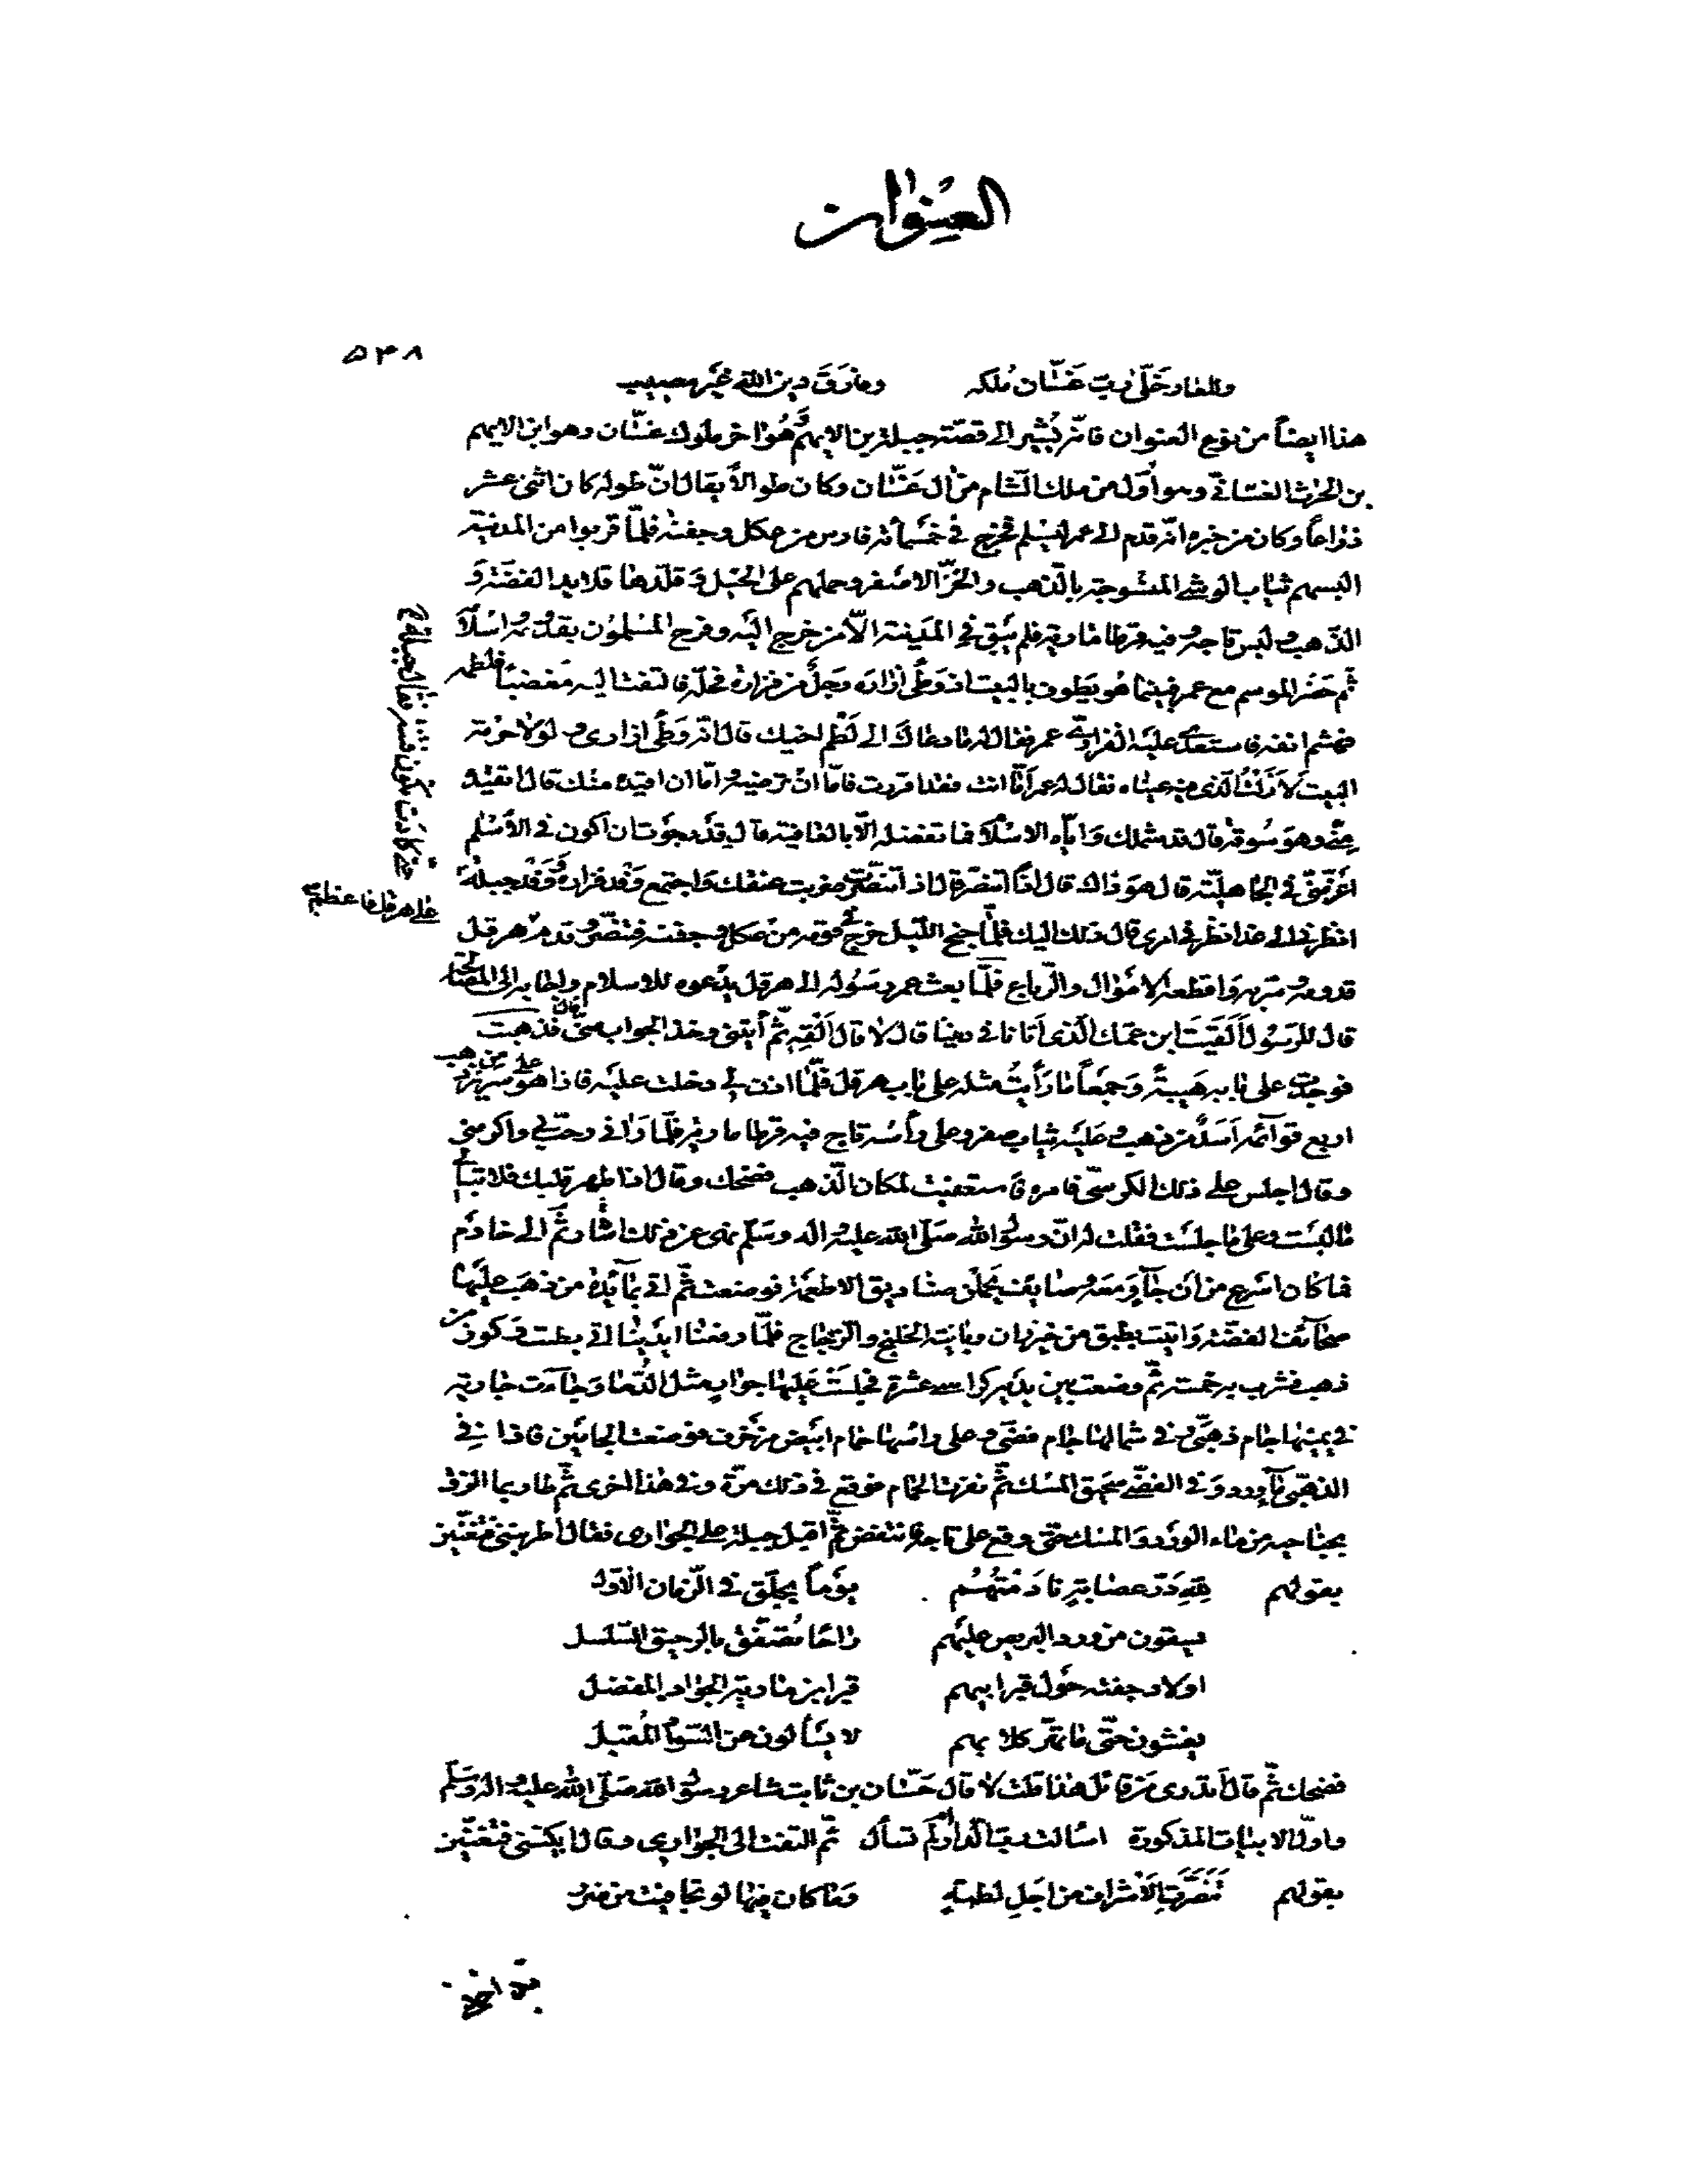 العنوان
٥٣٨
وللعار خَلّى ربّ غَسّان مُلكه وفارَقَ دين الله غَيْر مصيب
هذا ايضاً من نوع العنوان فانّه يُشير الى قصّة جبلة بن الايهم وهُوَ اخر ملوك غسّان وهو ابن الايهم
بن الحرث الغسّانى وهو اوّل من ملك الشام من ال غَسّان وكان طوالاً يقال انّ طوله كان اثنى عشر
ذراعاً وكان من خبره انّه قدم الى عمر ليسلم فخرج فى خمسمائة فارس من عكل وجفنة فلمّا قربوا من المدينة
البسهم ثياب الوشى المنسوجة بالذهب والخزّ الاصفر وحملهم على الخيل وَقلّدها قلايد الفضّة وَ
الذهب ولبس تاجه وفيه قرطا مارية فلم يبق فى المدينة الّا من خرج اليه وفرح المسلمون بقدومه واسلامه
ثمّ حَضَر الموسم مع عمر فبينما هُو يَطوف بالبيت اذ وَطئ ازاره رَجلٌ من فزارة فحلّه فالتفت اليه مغضباً فلطمه
فهشم انفه فاستعدى عليه الفزارى عمر فقال له ما دعاك الى لَطْم اخيك قال انّه وَطئ ازارى ولولا حُرمة
البيت لَاخَذْتُ الّذى فيه عيناه فقال له عمر اَمّا انت فقد اقررت فامّا انْ ترضيه وامّا ان اقيده منك قال اتقيده
منّى وهوَ سُوقة قال قد شملك وَايّاه الاسلام فما تفضله الّا بالعافية قال قد رجوت ان اكون فى الاسلام
اعَزّ منّى فى الجاهليّة قال هوَ ذاك قال اذاً اتنصّر قال اذ اتنصّرت ضربت عنقك وَاجتمع وَفْد فزارة وَوَفْد جبلة
حتّى كادت تكون فتنة فقال جبلة
انظرنى الى غد انظر فى امرى قال ذلك اليك فلمّا جنح اللّيل خرج فى قومه من عكل وجفنة فتنصّر وقدم على هرقل فاعظم
قدومه وسرّ به وَاقطعه الامْوال والرّباع فلمّا بعث عمر رسُوله الى هرقل يدعوه للاسلام واجابه الى المصالحة
قال للرسُول اَلَقيتَ ابن عمّك الّذى اَتانا فى ديننا قال لا قال اَلْقِه ثمّ اُئتنى وخذ الجواب منّى قال فذهبت
فوجدت على بابه هَيبةً وَجمعاً ما رَاَيتُ مثله على باب هرقل فلمّا اذن لى دخلت عليه فاذا هو على سرير من ذهب
اربع قوآئمه اَسَد من ذهب وعَليه ثياب صفر وعلى رأسه تاج فيه قرطا مارية فلمّا رَانى رحّب لى واكرمنى
وقال اجلس على ذلك الكرسىّ فامره فاستعفيت لمكان الّذهب فضحك وقال اذا طهر قلبك فلا تبال
ما لبست وعلى ما جلست فقلت له انّ رسُول الله صَلّى الله عليه واله وسَلّم نهى عن ذلك اشار ثمّ الى خادم
فما كان اسْرع من اَن جآء وَمعَه وصايف يَحملن صناديق الاطعمة فوضعت ثمّ اتى بمآئدة من ذهَب عليها
صحآئف الفضّة وَاتيت بطبق من خيزران وبانية الخلنج والزّجاج فلمّا رفعنا ايدينا اتى بطست وكوز من
ذهب فشرب به خمسة ثمّ وضعت بين يدَيه كراسى عشرة فجلسَتْ عَليها جوارٍ مثل الدّما وَجآءت جارية
فى يمينها جام ذهبىّ وفى شمالها جام فضّى وعلى رأسها حمام ابيض مزخرف فوضعت الجامَين فاذا فى
الذهبىّ مآء ورد وَفى الفضّى سحيق المسْك ثمّ نفرت الحمام فوقع فى ذلك مرّة وفى هذا اخرى ثمّ طار بما الزق
بجناحيه من ماء الورد وَالمسك حتّى وقع على تاجه فانتفض ثمّ اقبل جبلة على الجوارى فقال اطربننى فغنّين
بقولهم لِلّهِ دَرّ عصابةٍ نادَمْتُهُم يَوْماً بجلّق فى الزّمان الاوّل
يسقون من ورد البريص عليهم راحا تُصَفّق بالرحيق السّلسل
اولاد جفنة حَوْل قبر ابيهم قبر ابن مارية الجَواد المفضل
يغشون حتّى ما تهرّ كلابهم لا يسْألون عن السّواد المقبل
فضحك ثمّ قال اَتدرى مَن قائل هذا قلت لا قال حَسّان بن ثابت شاعر رسُول الله صَلّى الله عليه واله وسَلّم
واوّل الابيات المذكورة اسَالت رسم الدار ام لَم تسأل ثمّ التفت الى الجوارى وقال ابكيننى فغنّين
بقولهم تَنَصَّرَتِ الاَشراف من اجَلِ لطمةٍ وَما كان فيها لو تجافيت من ضرر